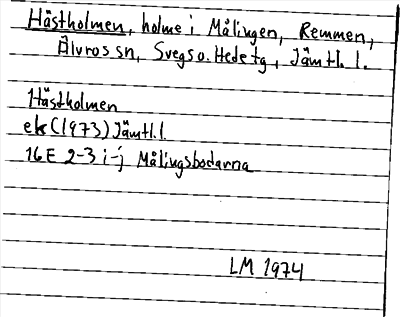 Hästholmen, holme i Målingen, Remmen,
Älvros sn, Svegs o. Hede tg, Jämtl. l.
Hästholmen
ek (1973) Jämtl. l.
16E 2-3 i-j Målingsbodarna
LM 1974